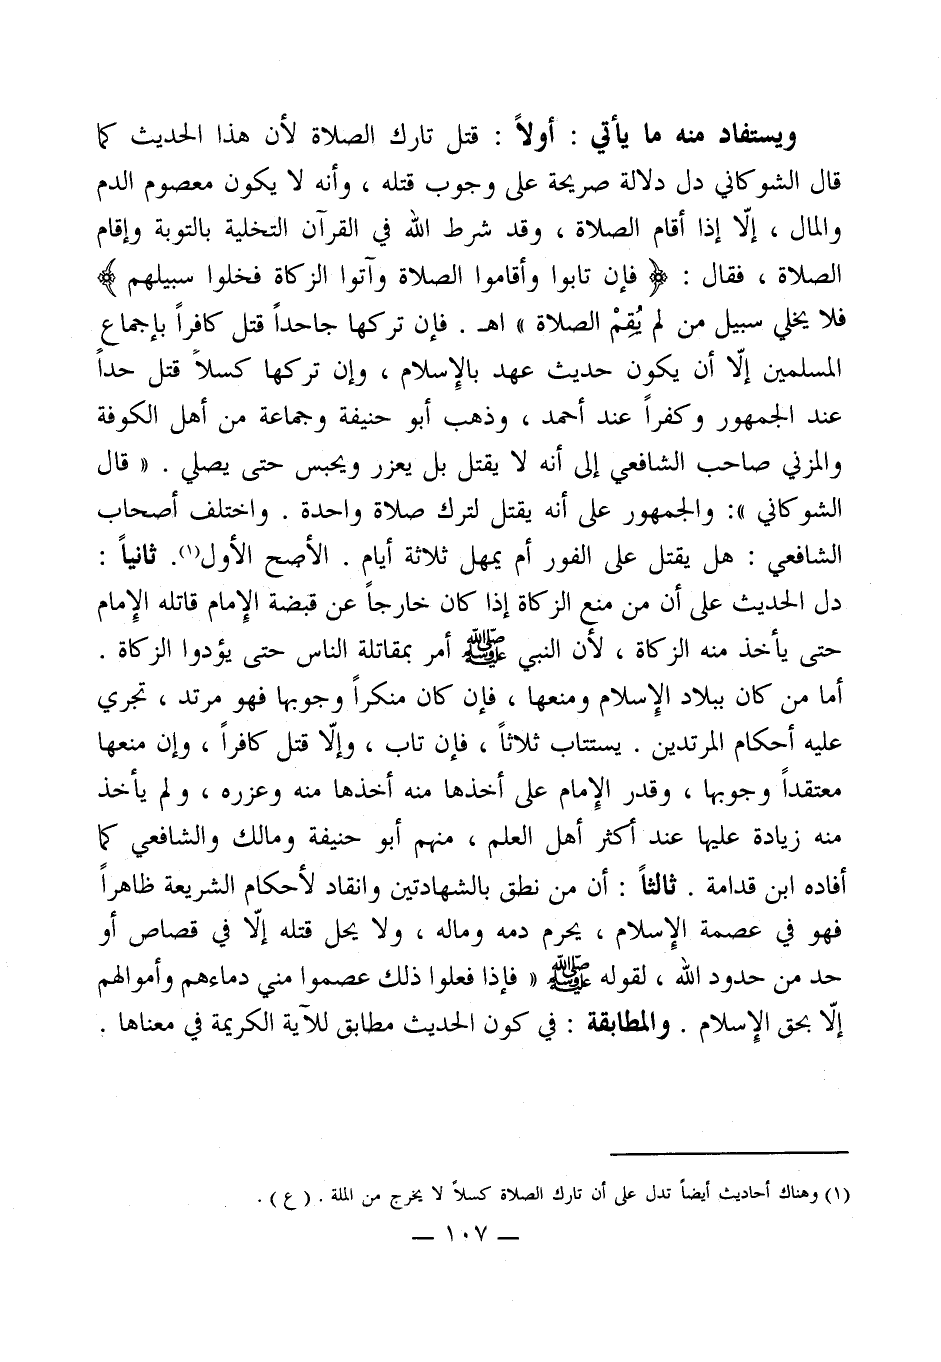 ويستفاد منه ما يأتي : أولاً : قتل تارك الصلاة لأن هذا الحديث كما
قال الشوكاني دل دلالة صريحة على وجوب قتله ، وأنه لا يكون معصوم الدم
والمال ، إلّا إذا أقام الصلاة ، وقد شرط الله في القرآن التخلية بالتوبة وإقام
الصلاة ، فقال : ﴿ فإن تابوا وأقاموا الصلاة وآتوا الزكاة فخلوا سبيلهم ﴾
فلا يخلي سبيل من لم يُقِمْ الصلاة » اهـ . فإن تركها جاحداً قتل كافراً بإجماع
المسلمين إلّا أن يكون حديث عهد بالإِسلام ، وإن تركها كسلاً قتل حداً
عند الجمهور وكفراً عند أحمد ، وذهب أبو حنيفة وجماعة من أهل الكوفة
والمزني صاحب الشافعي إلى أنه لا يقتل بل يعزر ويحبس حتى يصلي . « قال
الشوكاني »: والجمهور على أنه يقتل لترك صلاة واحدة . واختلف أصحاب
الشافعي : هل يقتل على الفور أم يمهل ثلاثة أيام . الأصح الأول(١). ثانياً :
دل الحديث على أن من منع الزكاة إذا كان خارجاً عن قبضة الإِمام قاتله الإِمام
حتى يأخذ منه الزكاة ، لأن النبي ﷺ أمر بمقاتلة الناس حتى يؤدوا الزكاة .
أما من كان ببلاد الإِسلام ومنعها ، فإن كان منكراً وجوبها فهو مرتد ، تجري
عليه أحكام المرتدين . يستتاب ثلاثاً ، فإن تاب ، وإلّا قتل كافراً ، وإن منعها
معتقداً وجوبها ، وقدر الإِمام على أخذها منه أخذها منه وعزره ، ولم يأخذ
منه زيادة عليها عند أكثر أهل العلم ، منهم أبو حنيفة ومالك والشافعي كما
أفاده ابن قدامة . ثالثاً : أن من نطق بالشهادتين وانقاد لأحكام الشريعة ظاهراً
فهو في عصمة الإِسلام ، يحرم دمه وماله ، ولا يحل قتله إلّا في قصاص أو
حد من حدود الله ، لقوله ﷺ « فإذا فعلوا ذلك عصموا مني دماءهم وأموالهم
إلّا بحق الإِسلام . والمطابقة : في كون الحديث مطابق للآية الكريمة في معناها .
(١) وهناك أحاديث أيضاً تدل على أن تارك الصلاة كسلاً لا يخرج من الملة . ( ع ) .
— ١٠٧ —